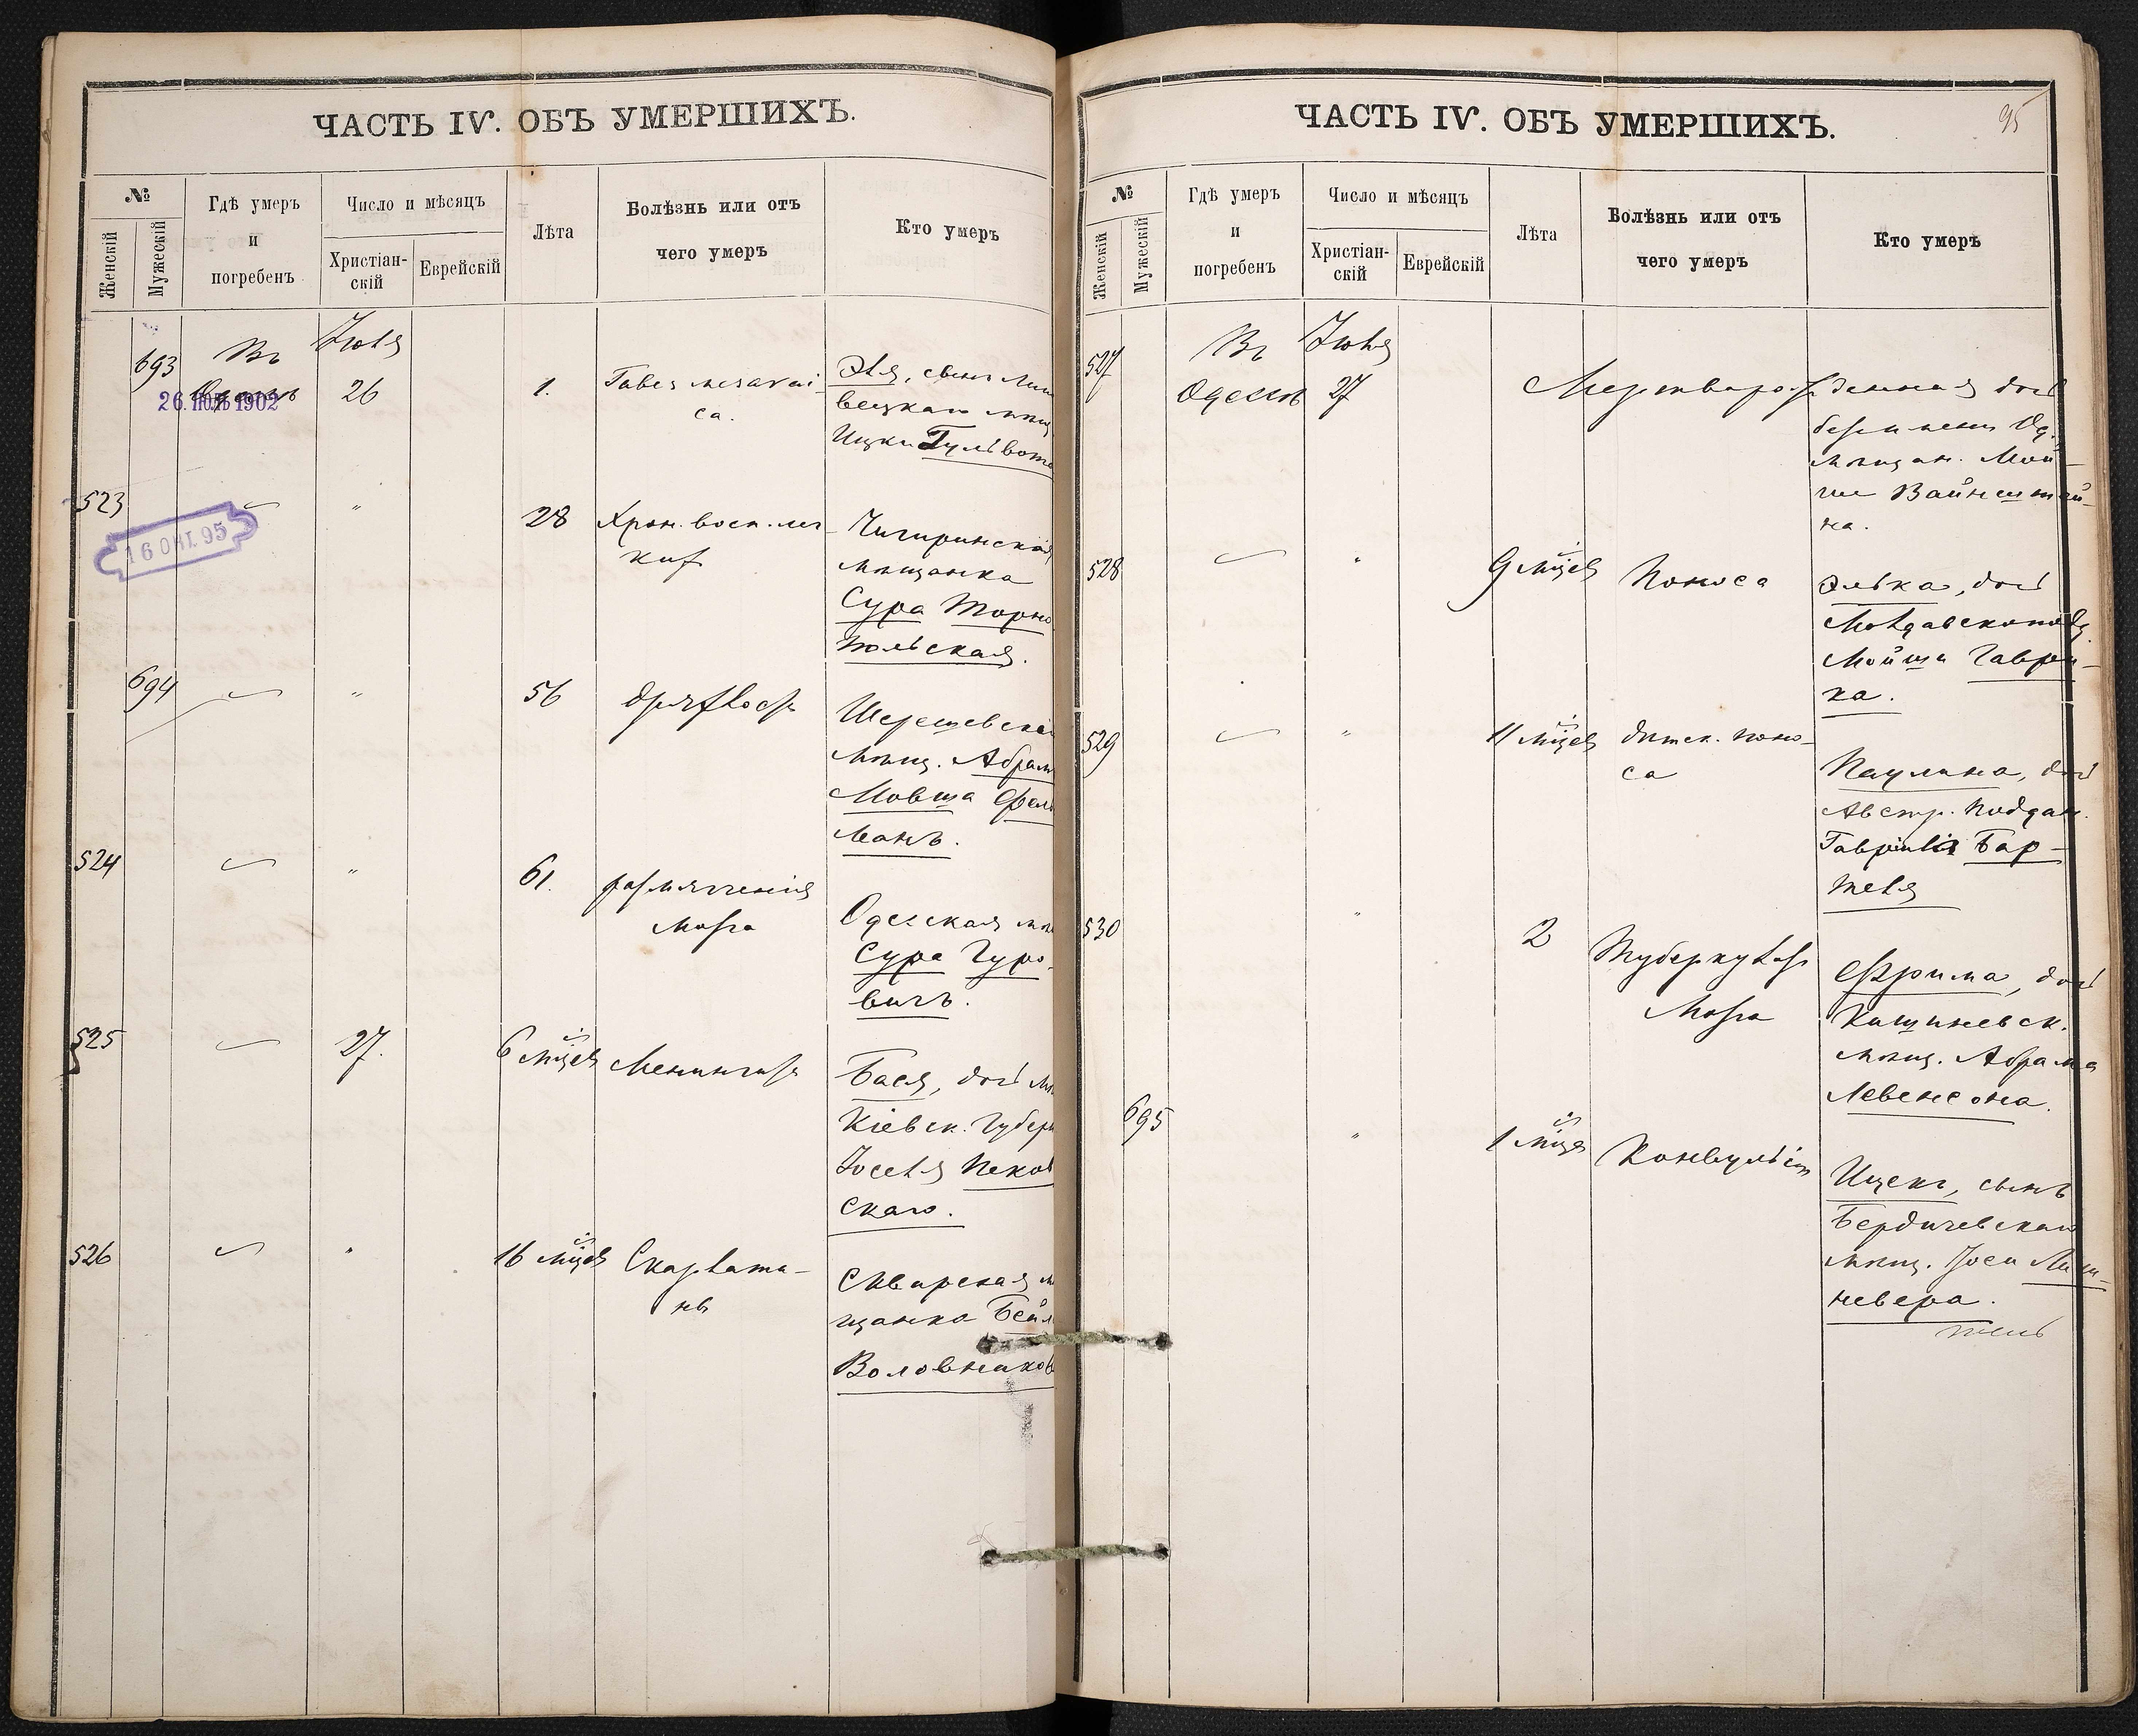 ЧАСТЬ IV. ОБЪ УМЕРШИХЪ.
№
Женскій
Мужескій
Гдѣ умеръ
и
погребенъ
Число и мѣсяцъ
Христіан-
скій
Еврейскій
Лѣта
Болѣзнь или отъ
чего умеръ
Кто умеръ
693
Въ
Одессѣ
26. ІЮЛЬ 1902
Іюля
26
1.
Tabes mesarai
ca.
Эля, сынъ
вецкаго мѣщ
Ицки Гульвотм
523
16 ОКТ. 95
"
28
Хрон. восп. лег
ких
Чигиринская
мѣщанка
Сура Торно
польская.
694
"
56
дряхлость
Шерешевскій
мѣщ. Абрам
Мовша Фель
манъ.
524
"
61.
размягченія
мозга
Одесская мѣ
Сура Гуро-
вичъ.
525
27.
6 мѣсцевъ
Менингитъ
Бася, дочь мѣ
Кіевск. Губерн
Іоселя Пеков
скаго.
526
"
16 мѣсцевъ
Скарлати-
нѣ
Сквирская мѣ
щанка Бейл
Воловников
ЧАСТЬ IV. ОБЪ УМЕРШИХЪ.
95
№
Женскій
Мужескій
Гдѣ умеръ
и
погребенъ
Число и мѣсяцъ
Христіан-
скій
Еврейскій
Лѣта
Болѣзнь или отъ
чего умеръ
Кто умеръ
527
Въ
Одессѣ
Іюля
27
Мертворожденная дочь
без имени Од.
мѣщан. Мой-
ше Вайнштей-
на.
528
"
9 мѣсцевъ
Поноса
Элька, дочь
Молдавскопод.
Мойши Гаври-
ка.
529
"
11 мѣсцевъ
дѣтск. поно-
са
Паулина, дочь
Австр. поддан.
Гавріила Бар-
теля
530
"
2
Туберкулоз
Мозга
Фрима, дочь
Кишиневск.
мѣщ. Абрама
Левенсона.
695
"
1 мѣсца
Конвульсіи
Ицекъ, сынъ
Бердичевскаго
мѣщ. Іоси Лин-
невера.